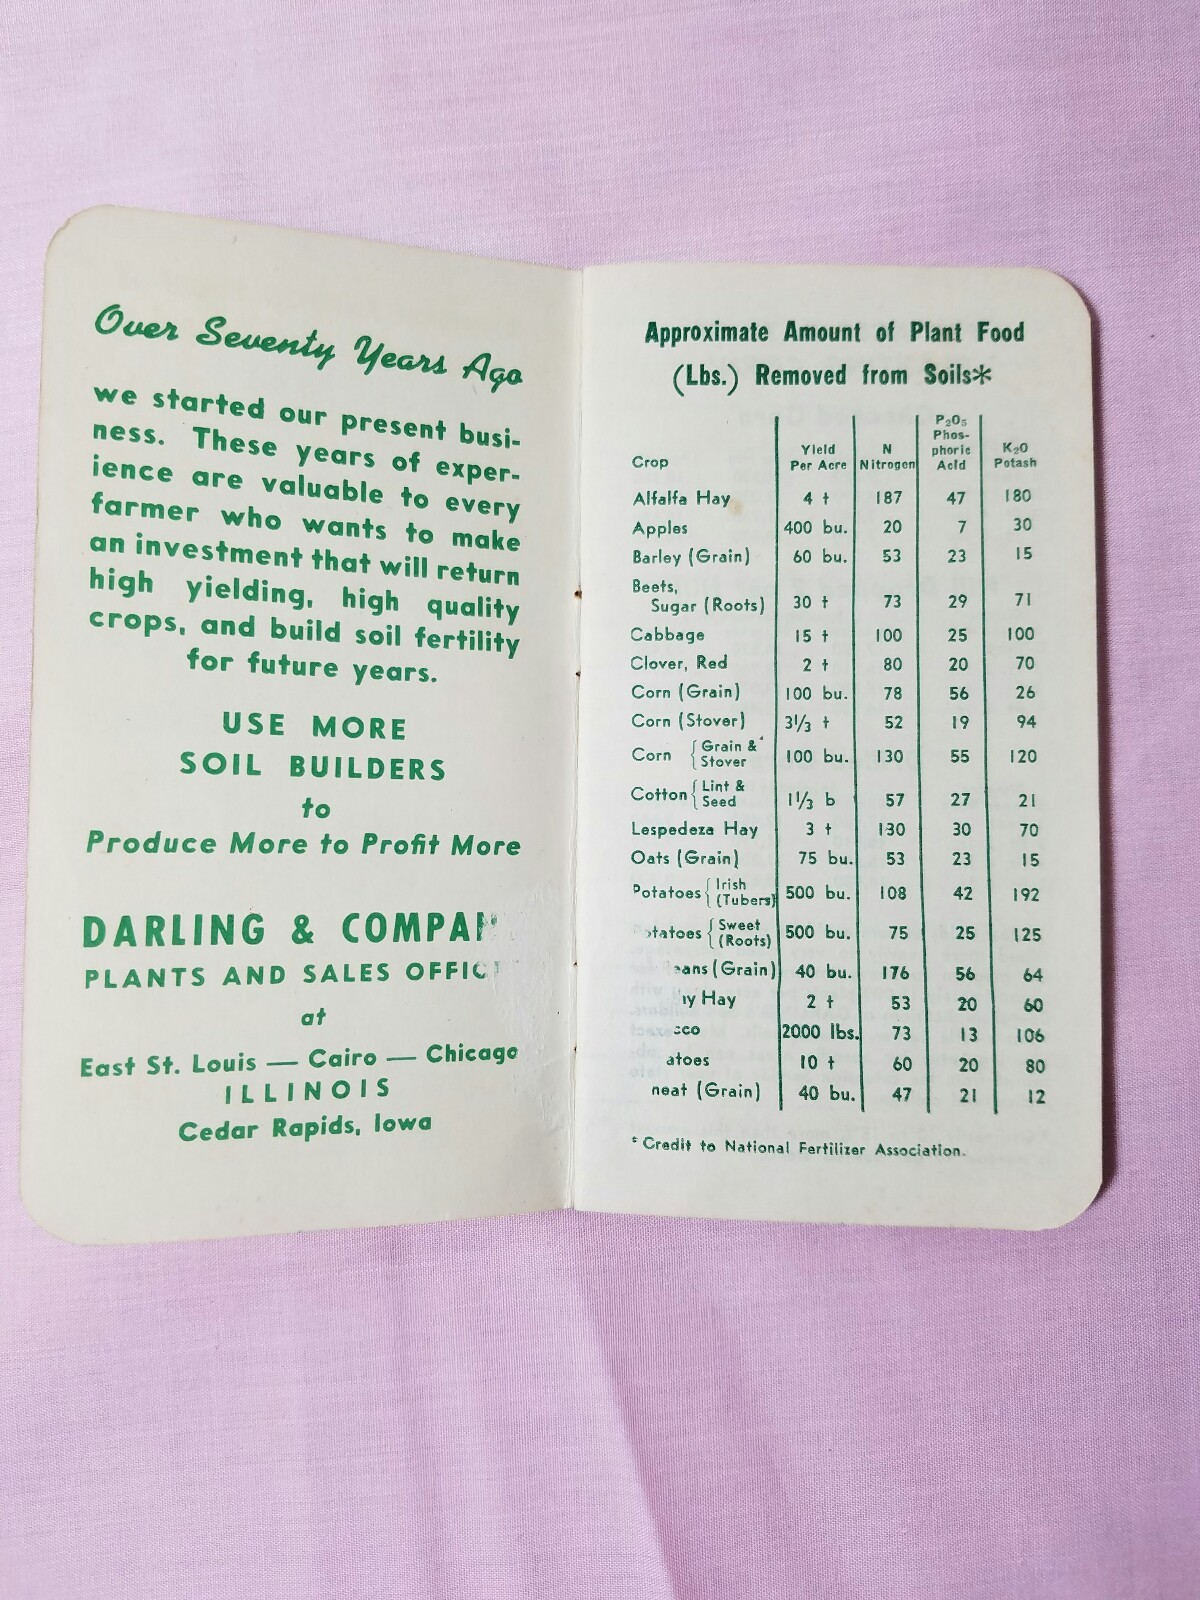 Over Seventy Years Ago
we started our present busi-
ness. These years of exper-
ience are valuable to every
farmer who wants to make
an investment that will return
high yielding, high quality
crops, and build soil fertility
for future years.
USE MORE
SOIL BUILDERS
to
Produce More to Profit More
DARLING & COMPAN
PLANTS AND SALES OFFIC
at
East St. Louis — Cairo — Chicago
ILLINOIS
Cedar Rapids, Iowa
Approximate Amount of Plant Food
(Lbs.) Removed from Soils*
Crop Yield Per Acre N Nitrogen P₂O₅ Phos-phoric Acid K₂O Potash
Alfalfa Hay 4 t 187 47 180
Apples 400 bu. 20 7 30
Barley (Grain) 60 bu. 53 23 15
Beets,
Sugar (Roots) 30 t 73 29 71
Cabbage 15 t 100 25 100
Clover, Red 2 t 80 20 70
Corn (Grain) 100 bu. 78 56 26
Corn (Stover) 3⅓ t 52 19 94
Corn { Grain & Stover 100 bu. 130 55 120
Cotton { Lint & Seed 1⅓ b 57 27 21
Lespedeza Hay 3 t 130 30 70
Oats (Grain) 75 bu. 53 23 15
Potatoes { Irish (Tubers) 500 bu. 108 42 192
tatoes { Sweet (Roots) 500 bu. 75 25 125
eans (Grain) 40 bu. 176 56 64
y Hay 2 t 53 20 60
cco 2000 lbs. 73 13 106
atoes 10 t 60 20 80
heat (Grain) 40 bu. 47 21 12
*Credit to National Fertilizer Association.